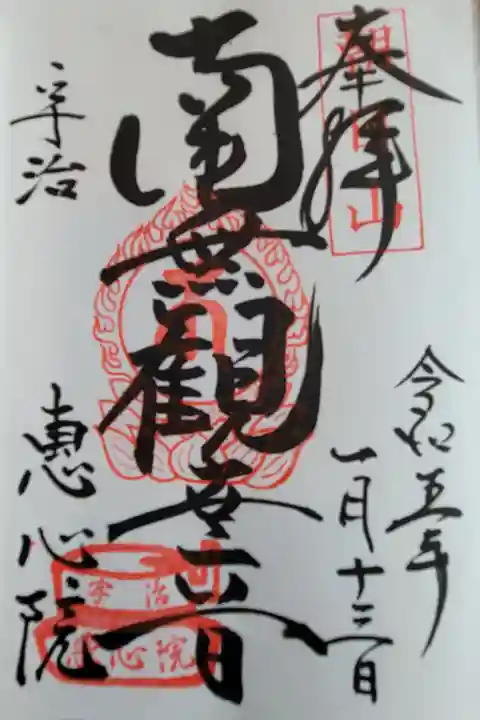 奉拝
朝日山
令和五年
一月十三日
南無観世音
宇治
恵心院
宇治
恵心院